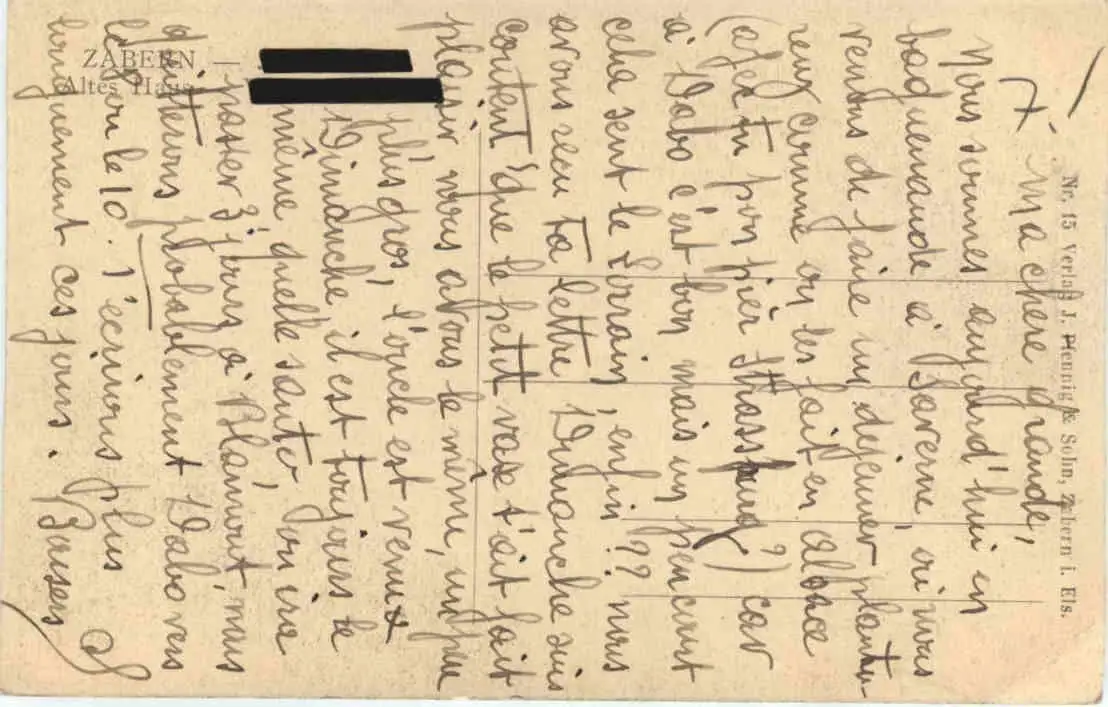 ZABERN —
Altes Haus
Nr. 15 Verlag J. Pfennig & Sohn, Zabern i. Els.
7. Ma chère grande,
Nous sommes aujourd'hui en
baguenaude à Saverne, où nous
venons de faire un dejeuner plantu-
reux comme on les fait en alsace
( tu Strassburg?) car
à Dabo c'est bien mais un peu court
cela sent le Lorrain, enfin?? nous
avons recu ta lettre Dimanche suis
content que le petit vase t'ait fait
plaisir, nous avons le même, un peu
plus gros, l'oncle est venu
Dimanche il est toujours le
même, quelle santé, on ira
passer 3 jours à Blâmont, mais
quitterons probablement Dabo vers
le 9 ou le 10. t'écrirons plus
longuement ces jours. Baisers